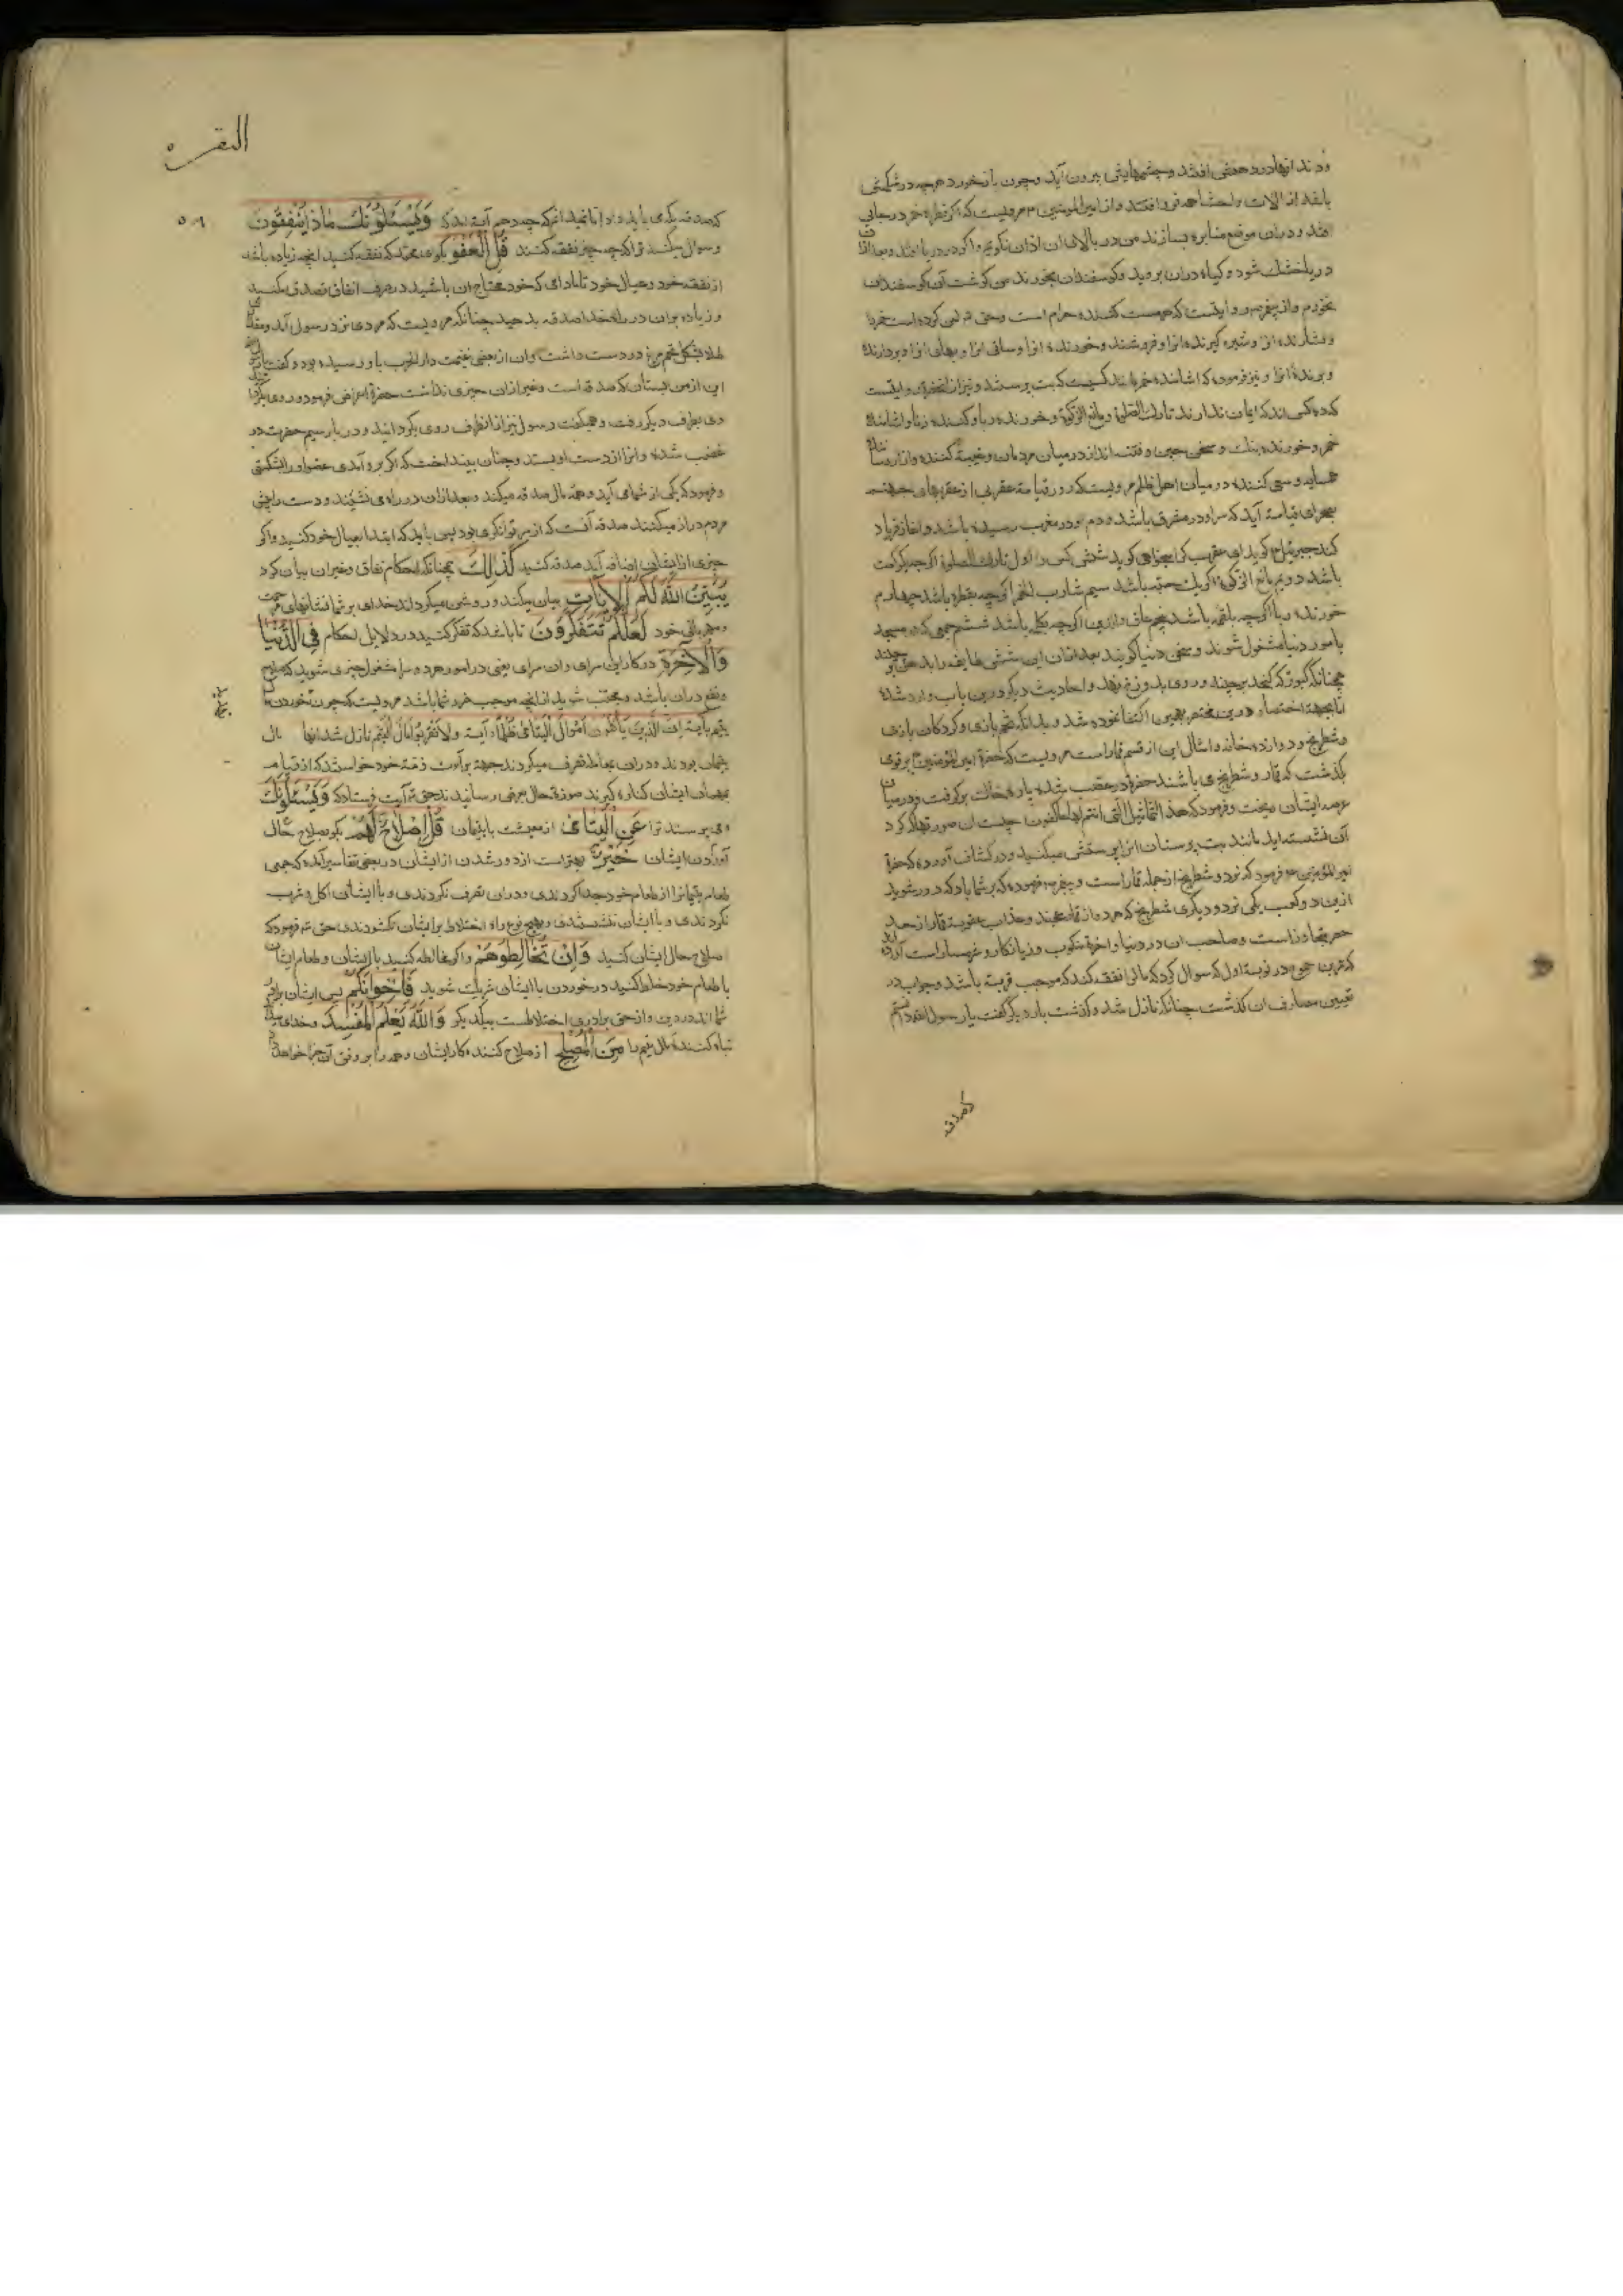 باشد از آلات و احشا همه فرو افتد و از امیرالمومنین ۴ مرویست که اگر قطره خمر در جایی
افتد و در ان موضع مناره بسازند من در بالای ان اذان نگویم و اگر در دریا افتد و بعد از ان
دریا خشك شود و کیاه دران بروید و کوسفندان بخورند من کوشت آن کوسفندان
نخورم و از پیغمبر روایتست که هر مست کننده حرام است
و فشارنده انرا و شیره کیرنده انرا و فروشنده و خورنده انرا و ساقی انرا و بهای انرا و بردارنده
کروه کسی اند که ایمان ندارند تارك الصلوة و مانع الزکوة و خورنده ربا و کننده زنا و اشامنده
همسایه و سعی کننده در میان اهل ظلم مرویست که روز قیامة عقربی از عقربهای جهنم
بصحرای قیامة آید که سر او در مشرق باشد و دم او در مغرب رسیده باشد و اغاز فریاد
کند جبرئیل کوید ای عقرب کرا میخواهی کوید شش کس را اول تارك الصلوة اگرچه یک رکعت
باشد دویم مانع الزکوة اگر یك حبه باشد سیم شارب الخمر اگرچه بقطره باشد چهارم
خورنده ربا اگرچه بلقمه باشد پنجم عاق والدین اگرچه بکلمه باشد ششم جمعی که در مسجد
بامور دنیا مشغول شوند و سخن دنیا کویند بعد ازان این شش طایفه را بدهن برچیند
همچنانکه کبوتر که کنجد برچیند و روی بدوزخ نهد و احادیث دیگر درین باب وارد شده
اما بجهة اختصار درین مختصر بهمین اکتفا نموده شد و بدانکه تخم بازی و کردکان بازی
و شطرنج و دوازده خانه و امثال این از قسم قمار است مرویست که حضرة امیرالمومنین بر قومی
بکذشت که قمار و شطرنج می باشند حضرة در غضب شده پاره خاك بر گرفت و در میان
عرصه ایشان ریخت و فرمود که هذا التماثیل التی انتم لها عاکفون چیست ان صورتها که کرد
آن نشسته اید مانند بت پرستان انرا پرستش میکنید و در کشاف آورده که حضرة
امیرالمومنین فرمود که نرد و شطرنج از جمله قمار است و پیغمبر فرموده که بر شما باد که دور شوید
از این دو کعب یکی نرد و دیگری شطرنج که هر دو از قمار عجمند و عذاب عقوبة قمار از حد
حصر متجاوز است و صاحب ان در دنیا و اخرة منکوب و زیانکار و شرمسار است آورده
که عمرو بن جموح در نوبت اول که سوال کرد که مالرا نفقه کند که موجب قربة باشد و جواب در
تعیین مصارف ان کذشت چنانکه نازل شد و کذشت بار دیگر کفت یا رسول الله دانستم
که صدقه
البقره
۵۹
که صدقه بکه می باید داد اما نمیدانم که چه دهم آیت آمد که وَيَسْئَلُونَكَ مَاذَا يُنْفِقُونَ
و سوال میکنند ترا که چه چیز نفقه کنند قُلِ الْعَفْوَ بکو ای محمد که نفقه کنید انچه زیاده باشد
از نفقه خود و عیال خود تا مادامی که خود محتاج ان باشید در صرف انفاق تصدق مکنید
و زیاده بران در راه خدا صدقه بدهید چنانکه مرویست که مردی نزد رسول آمد
طلا بشکل تخم مرغ در دست داشت و ان از بعضی غنیمت دار الحرب باو رسیده بود و کفت
این از من بستان که صدقه است و غیر ازان چیزی نداشت حضرة اعراض فرمود و روی بگردانید
وی بطرف دیگر رفت و همیکفت رسول نیز از انطرف روی بگردانید و در بار سیم حضرت در
غضب شده و انرا از دست او بستد و چنان بینداخت که اگر برو آمدی عضو او را شکستی
و فرمود که یکی از شما می آید و همه مال صدقه میکند و بعد ازان در راه می نشیند و دست پیش
مردم دراز میکند صدقه آنست که از سر توانگری بود پس باید که ابتدا بعیال خود کنید و اگر
چیزی از ایشان اضافه آید صدقه کنید كَذٰلِكَ همچنانکه احکام نفاق و غیر ان بیان کرد
يُبَيِّنُ اللّٰهُ لَكُمُ الْاٰيَاتِ بیان میکند و روشن میگرداند خدای بر شما نشانهای رحمت
و مهربانی خود لَعَلَّكُمْ تَتَفَكَّرُونَ تا باشد که تفکر کنید در دلایل احکام فِي الدُّنْيَا
وَالْاٰخِرَةِ در کار این سرای و ان سرای یعنی در امور هر دو سرا مشغول چیزی شوید که صلاح
و نفع دران باشد و مجتنب شوید از انچه موجب ضرر شما باشد مرویست که چون خوردن
یتیم بآیت ان الذین یأکلون اموال الیتامی ظلما آیة و لا تقربوا مال الیتیم نازل شد انها مال
یتیمان بودند و دران بمعامله تصرف میکردند جهة برآت ذمه خود خواستند که از قیام
بمهمات ایشان کناره کیرند صورة حال بعرض رسانیدند حق تع آیت فرستاد که وَيَسْئَلُونَكَ
و می پرسند ترا عَنِ الْيَتَامٰى از معیشت با یتیمان قُلْ اِصْلَاحٌ لَهُمْ بکو بصلاح حال
آوردن ایشان خَيْرٌ بهتر است از دور شدن از ایشان در بعضی تفاسیر آمده که جمعی
طعام یتیمانرا از طعام خود جدا کردندی و دران تصرف نکردندی و با ایشان اکل و شرب
نکردندی و با ایشان ننشستندی و بهیچ نوع راه اختلاط بر ایشان نکشودندی حق تع فرمود که
صلاح حال ایشان کنید وَاِنْ تُخَالِطُوهُمْ و اگر مخالطه کنید با ایشان و طعام ایشان
با طعام خود خلط کنید در خوردن با ایشان شریك شوید فَاِخْوَانُكُمْ پس ایشان برادر
شما اند در دین و از حق برادری اختلاطست بیکدیگر وَاللّٰهُ يَعْلَمُ الْمُفْسِدَ و خدای میداند
تباه کننده مال یتیم را مِنَ الْمُصْلِحِ از صلاح کننده کار ایشان و هر را بر وفق آن جزا خواهد داد